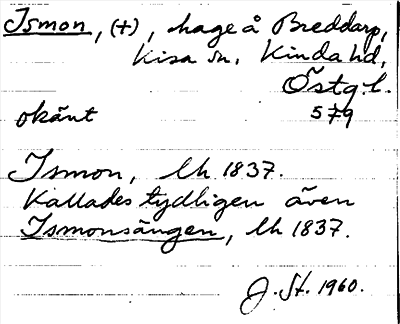 Ismon, (+), hage å Breddarp,
Kisa sn, Kinda hd,
Östg. l.
okänt 579
Ismon, lh 1837.
Kallades tydligen även
Ismonsängen, lh 1837.
J. St. 1960.